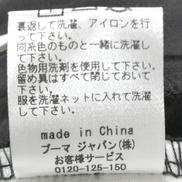 裏返して洗濯、アイロンを行
って下さい。
同系色のものと一緒に洗濯し
て下さい。
色物用洗剤を使用して下さい。
留め具はすべて閉じておいて
下さい。
服を洗濯ネットに入れて洗濯
して下さい。
made in China
プーマ ジャパン(株)
お客様サービス
0120-125-150